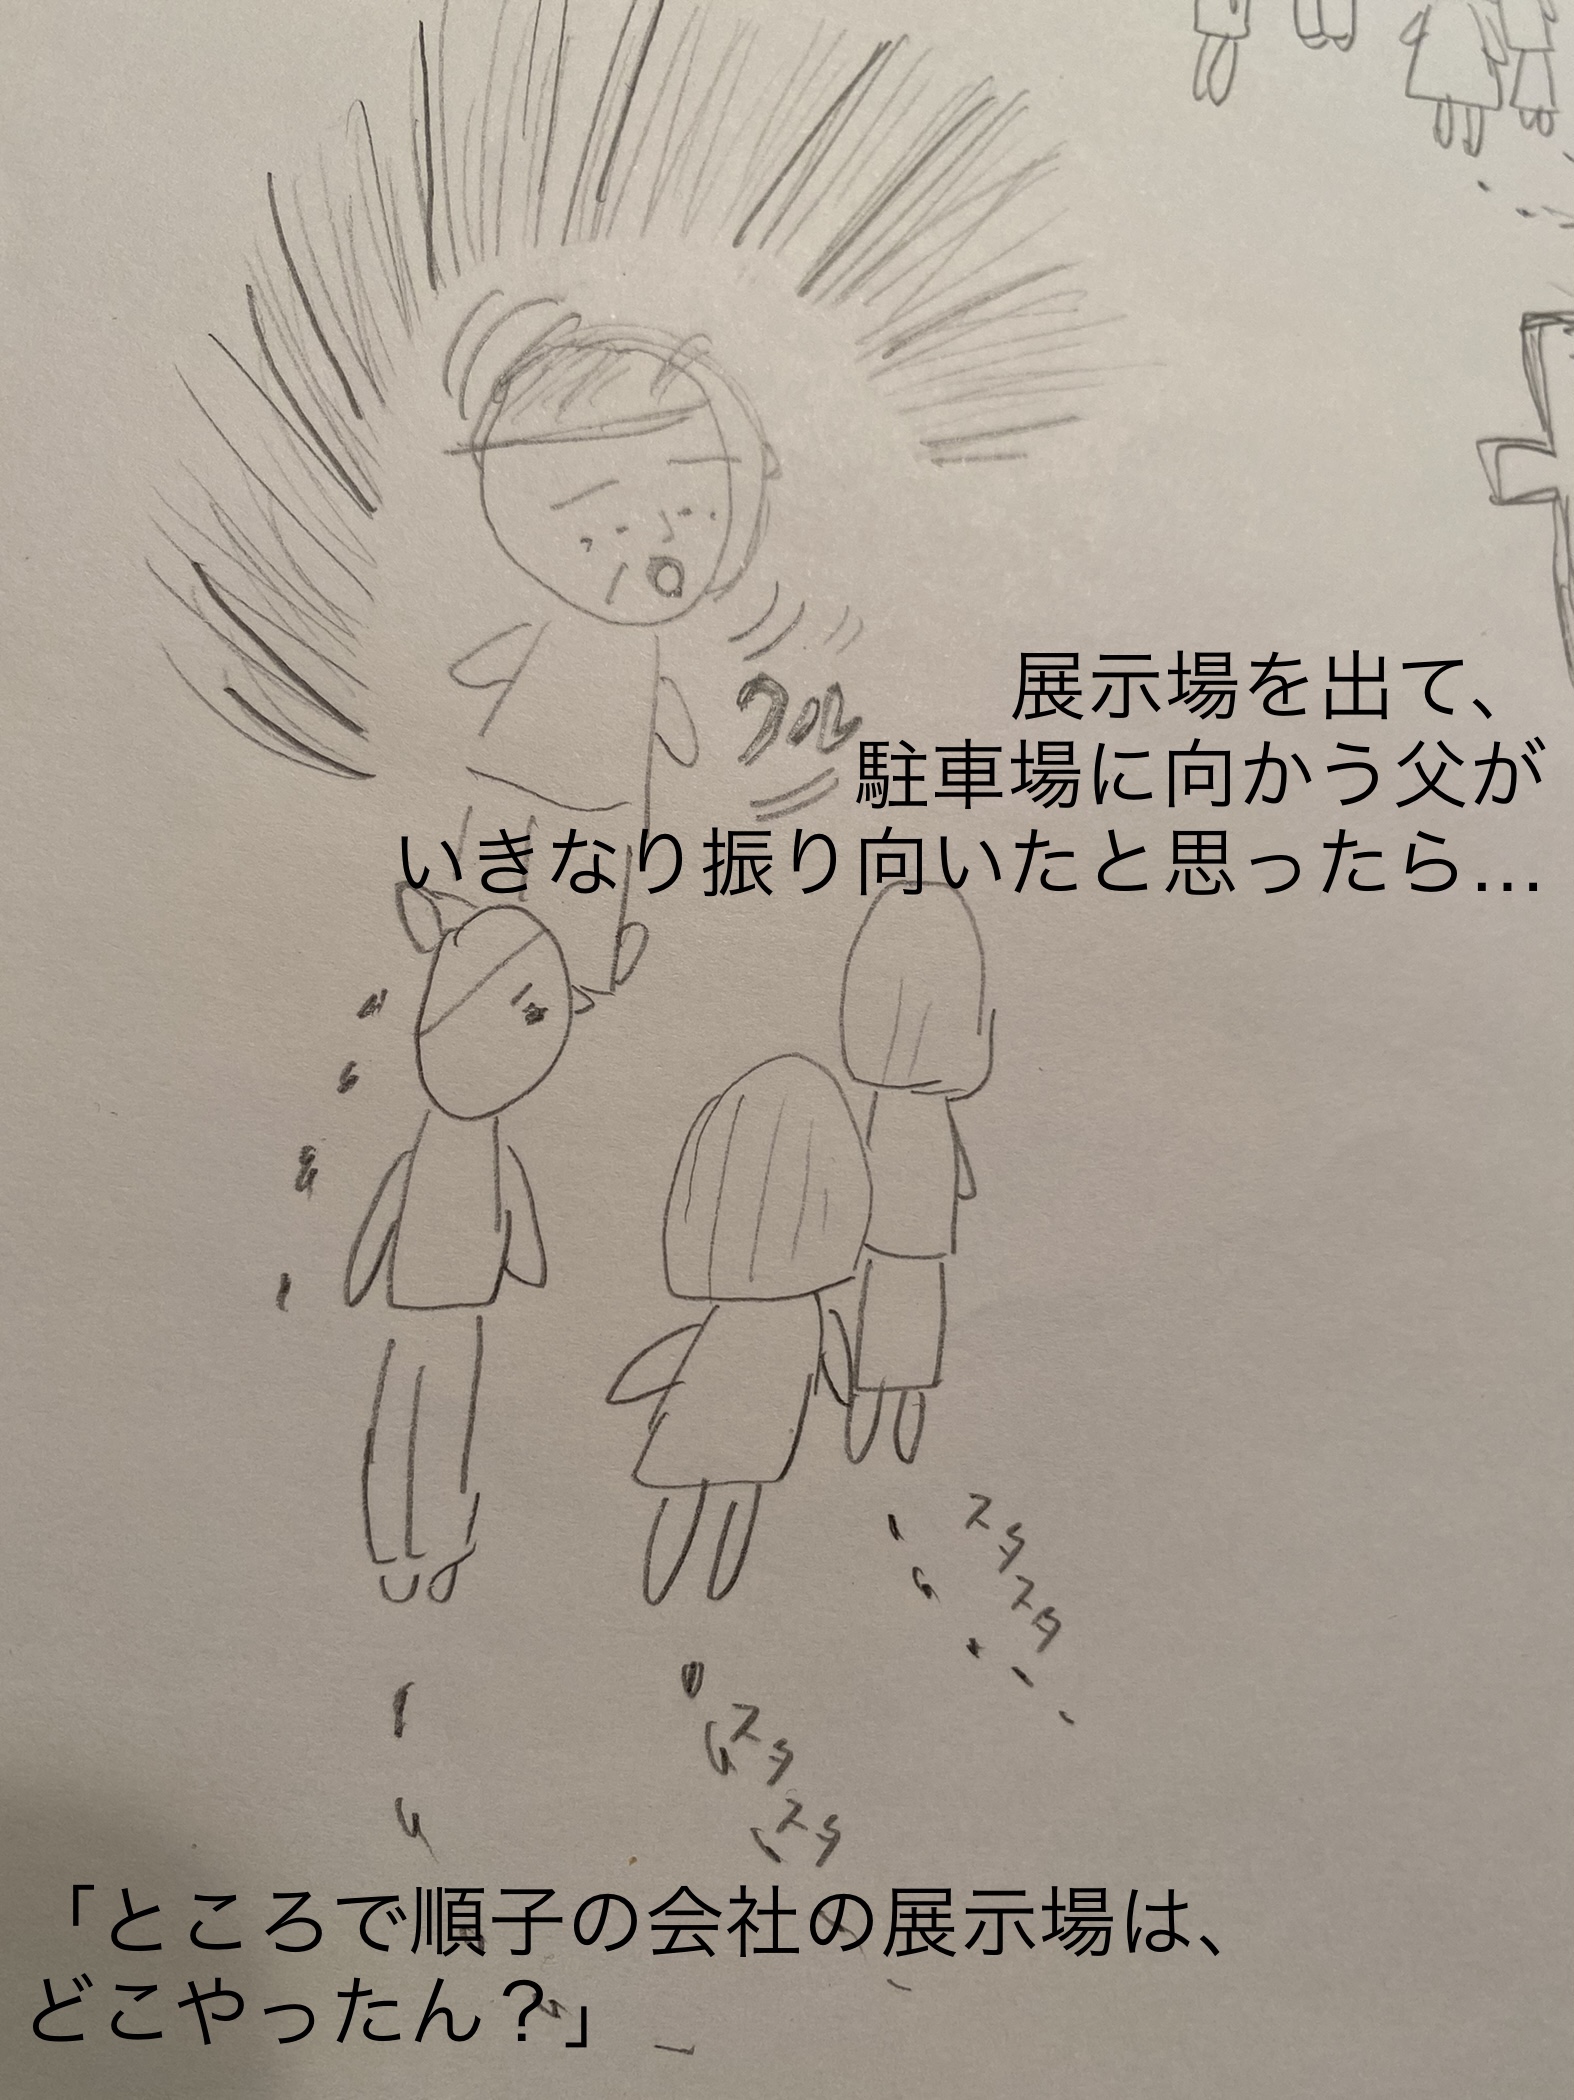 展示場を出て、
駐車場に向かう父が
いきなり振り向いたと思ったら…
スタ
スタ
スタ
スタ
「ところで順子の会社の展示場は、
どこやったん？」